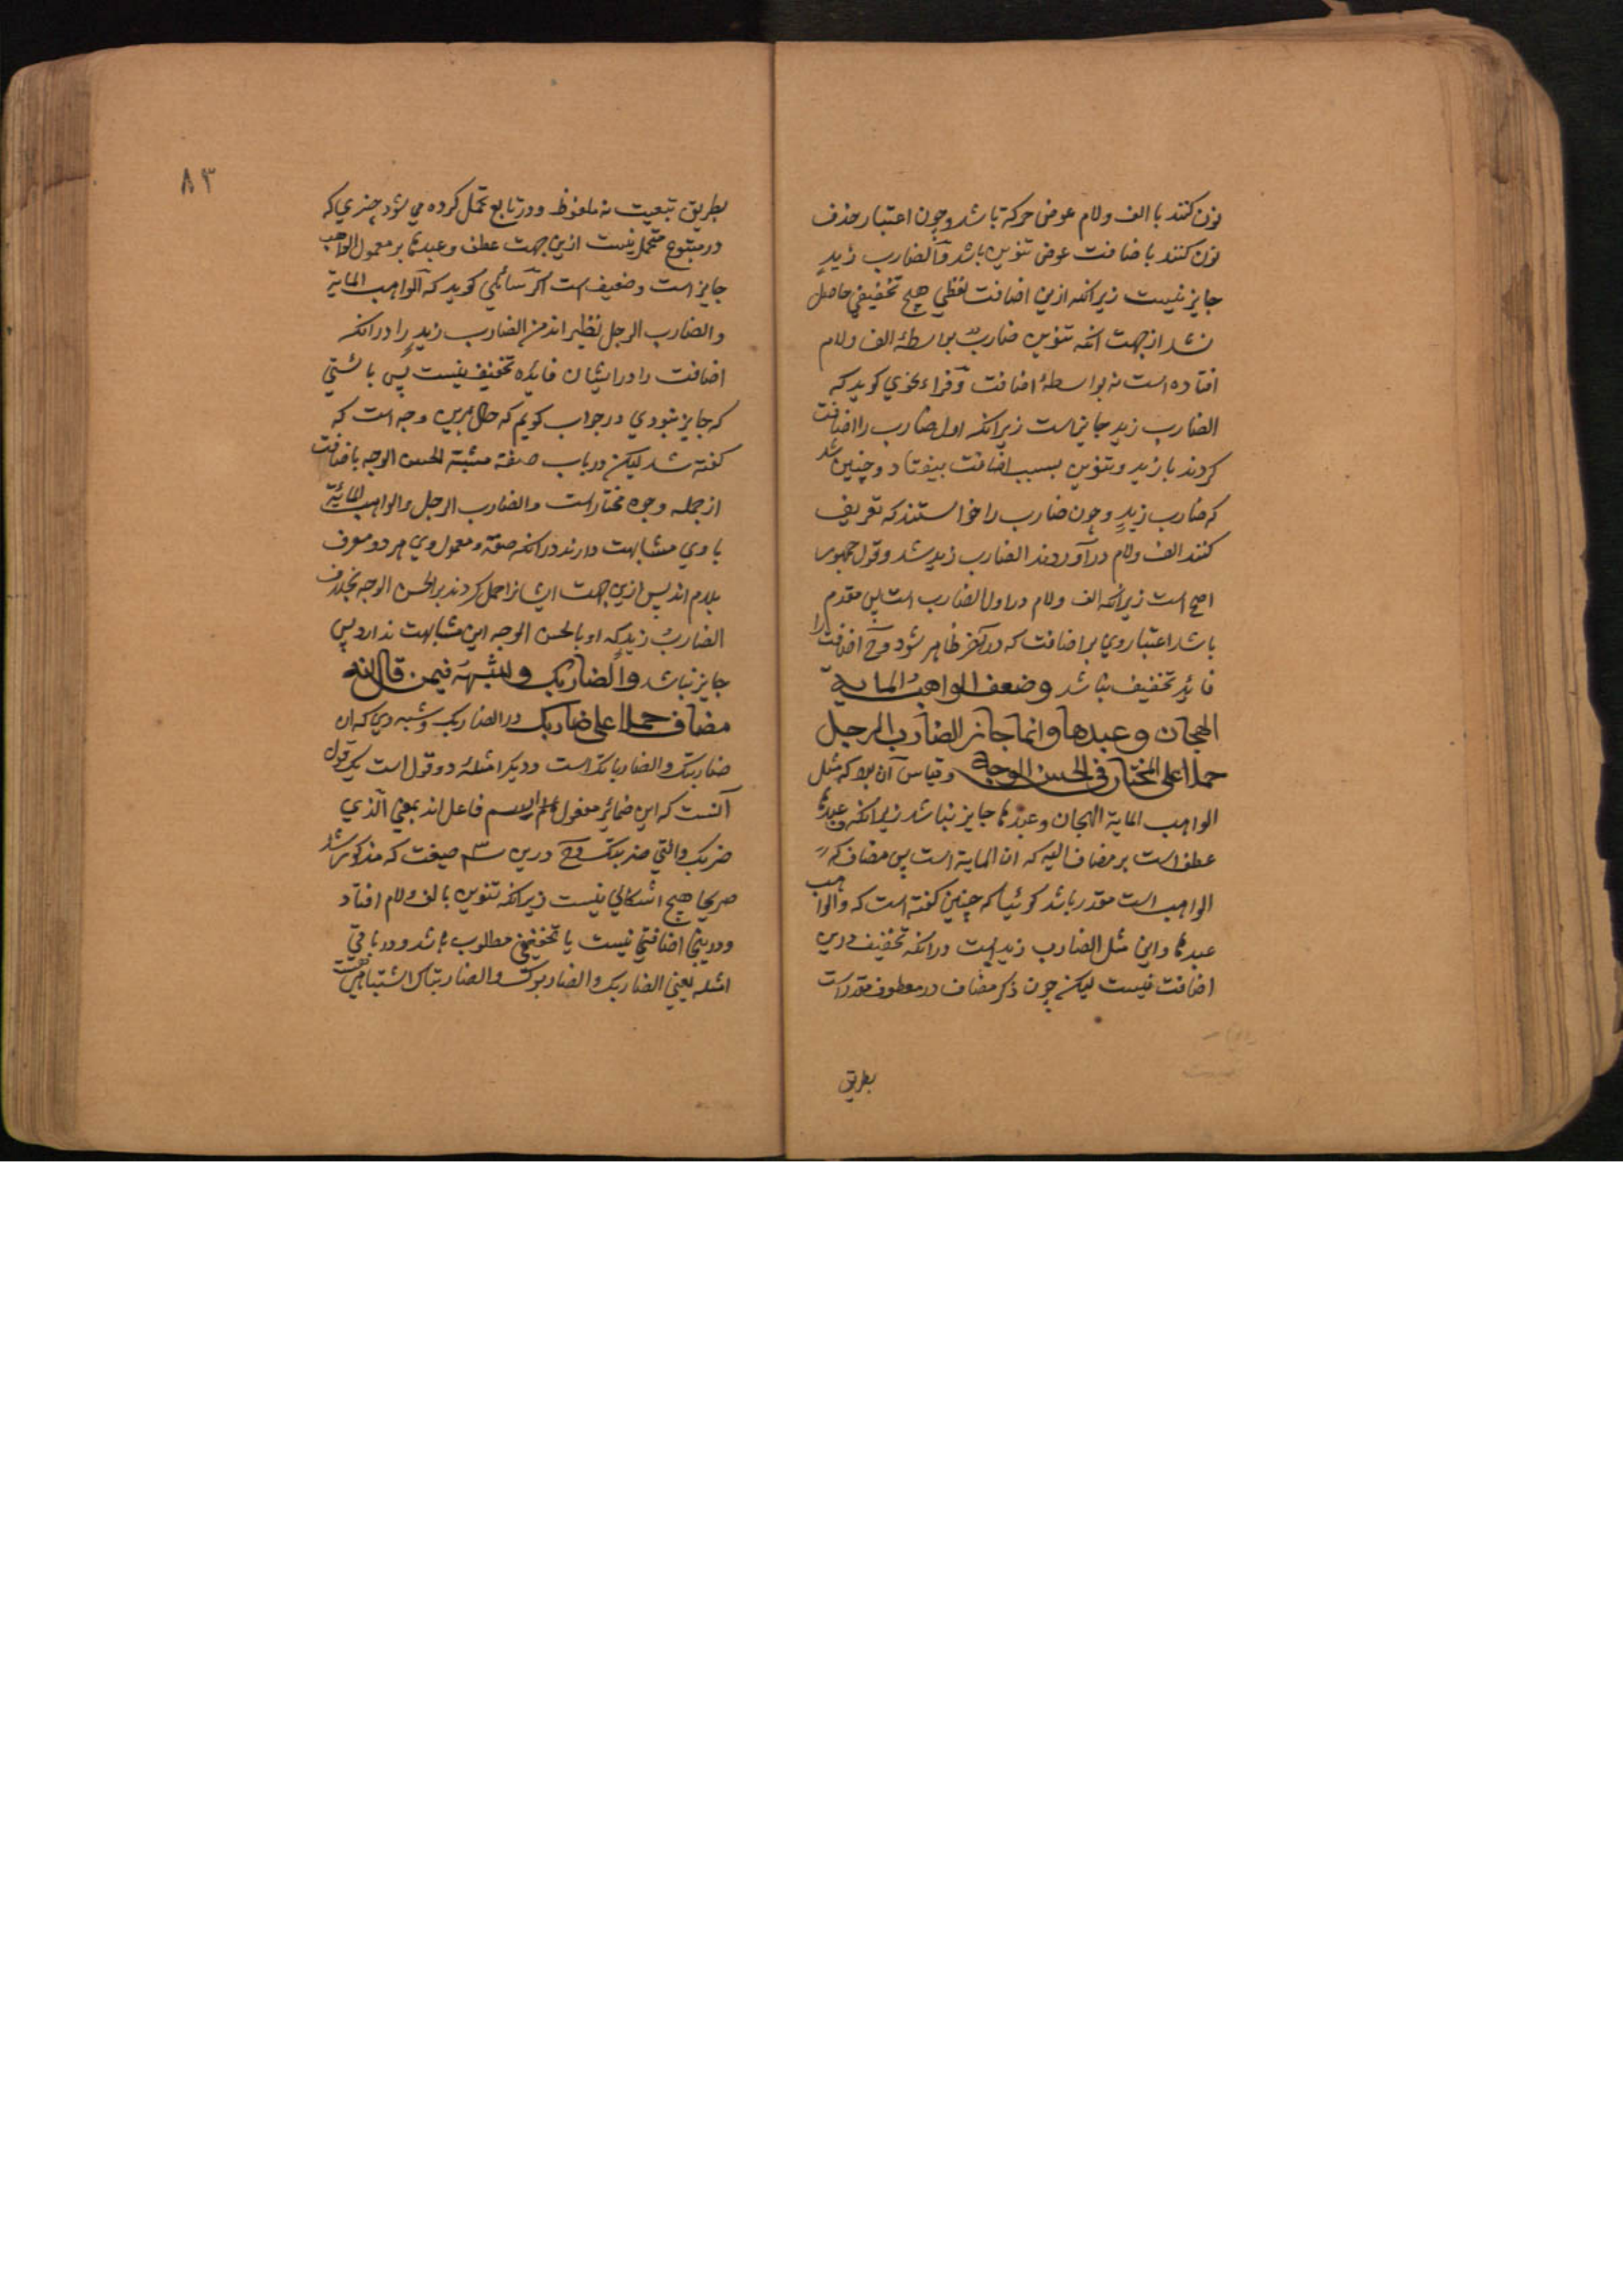 نون کنند با الف ولام عوض حرکة باشد وچون اعتبار حذف
نون کنند با ضافت عوض تنوین باشد والضارب زید
جایز نیست زیرانکه ازین اضافت لفظی هیچ تخفیفی حاصل
نشد از جهت انکه تنوین ضارب بواسطهٔ الف ولام
افتاده است نه بواسطهٔ اضافت وفراء نحوی کوید که
الضارب زید جایز است زیرانکه اول ضارب را اضافت
کردند با زید وتنوین بسبب اضافت بیفتاد وچنین شد
که ضارب زید وچون ضارب را خواستند که تعریف
کنند الف ولام در آوردند الضارب زید شد وقول جمهور
اصح است زیرانکه الف ولام در اول الضارب است پس مقدم
باشد اعتبار وی بر اضافت که در آخر ظاهر شود وح اضافت را
فایده تخفیف نباشد وضعف الواهب المایة
الهجان وعبدها وانما جاز الضارب الرجل
حملا علی المختار فی الحسن الوجه وقیاس آن بود که مثل
الواهب المایة الهجان وعبدها جایز نباشد زیرانکه وعبدها
عطف است بر مضاف الیه که ان المایة است پس مضاف که
الواهب است مقدر باشد کوئیا که چنین کفته است که والواهب
عبدها واین مثل الضارب زید است درانکه تخفیف درین
اضافت نیست لیکن چون ذکر مضاف در معطوف مقدر است
بطریق
٨٣
بطریق تبعیت نه ملفوظ ودر تابع تحمل کرده می شود چیزی که
در متبوع متحمل نیست ازین جهت عطف وعبدها بر معمول الواهب
جایز است وضعیف است اکر سائلی کوید که الواهب المایة
والضارب الرجل نظیر اند من الضارب زید را درانکه
اضافت را درایشان فایده تخفیف نیست پس بایستی
که جایز نبودی در جواب کویم که حال برین وجه است که
کفته شد لیکن در باب صفة مشبة الحسن الوجه باضافت
از جمله وجوه مختار است والضارب الرجل والواهب المائة
با وی مشابهت دارند درانکه صفة ومعمول وی هر دو معرف
بلام اند پس ازین جهت ایشانرا حمل کردند بر الحسن الوجه بخلاف
الضارب زید که او با الحسن الوجه این مشابهت ندارد پس
جایز نباشد والضاربک وشبهه فیمن قال انه
مضاف حملا علی ضاربک در الضاربک وشبه وی که ان
ضاربتک والضارباتک است ودیکر امثله دو قول است یک قول
آنست که این ضمائر مفعول اسم فاعل اند بمعنی الذی
ضربک والتی ضربتک وح درین سه صیغت که مذکور شد
صریحا هیچ اشکالی نیست زیرانکه تنوین بالف ولام افتاد
ودرینجا اضافتی نیست یا تخفیفی مطلوب باشد ودر باقی
امثله یعنی الضاربک والضاربوک والضاربتاک اشتباهی هست